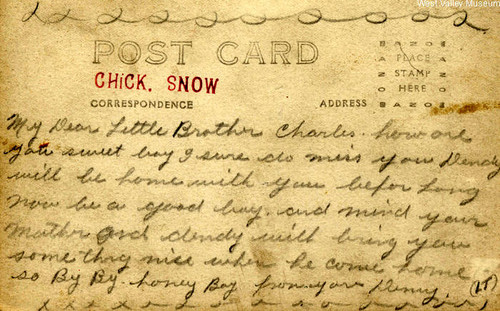 West Valley Museum
POST CARD
CHICK. SNOW
CORRESPONDENCE
ADDRESS
AZO
PLACE
STAMP
HERE
AZO
My Dear Little Brother Charles. how are
you sweet boy I sure do miss you Dendy
will be home with you befor long
now be a good boy. and mind your
Mother and dendy will bring you
some thing nice when he come home
so By By. honey Boy from your Denny.